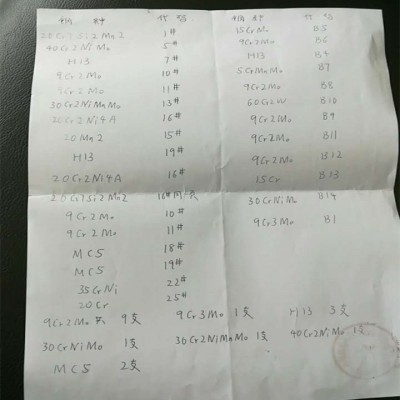 钢种 代号
20Cr2Si2Mn2 1#
40Cr2NiMo 5#
H13 7#
9Cr2Mo 10#
9Cr2Mo 11#
30Cr2NiMnMo 13#
20Cr2Ni4A 16#
20Mn2 15#
H13 19#
20Cr2Ni4A 16#
20Cr2Si2Mn2 16#
9Cr2Mo 10#
9Cr2Mo 11#
MC5 18#
MC5 19#
35CrNi 22#
20Cr 25#
钢种 代号
15CrMo B5
9Cr2Mo B6
H13 B4
5CrMnMo B7
9Cr2Mo B8
60Cr2W B10
9Cr2Mo B9
9Cr2Mo B11
9Cr2Mo B12
15Cr B13
30CrNiMo B14
9Cr3Mo B1
9Cr2Mo 共 9支 9Cr3Mo 1支 H13 3支
30CrNiMo 1支 30Cr2NiMnMo 1支 40Cr2NiMo 1支
MC5 2支